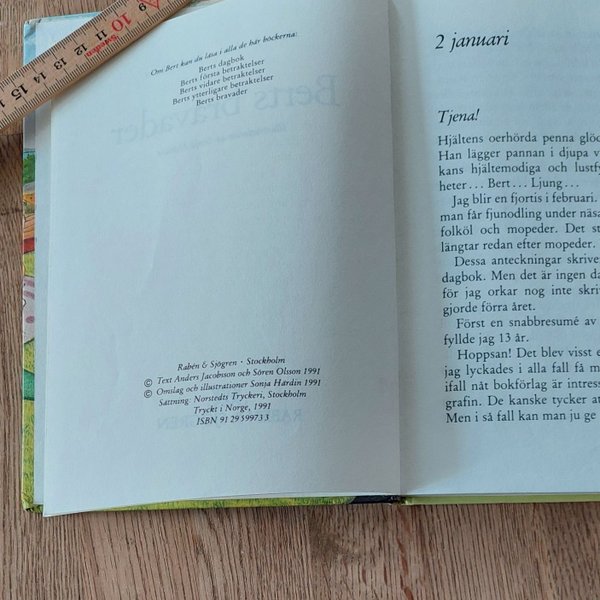 Om Bert kan du läsa i alla de här böckerna:
Berts dagbok
Berts första betraktelser
Berts vidare betraktelser
Berts ytterligare betraktelser
Berts bravader
Berts bravader
Rabén & Sjögren · Stockholm
© Text Anders Jacobsson och Sören Olsson 1991
© Omslag och illustrationer Sonja Härdin 1991
Sättning. Norstedts Tryckeri, Stockholm
Tryckt i Norge, 1991
ISBN 91 29 59973 3
2 januari
Tjena!
Hjältens oerhörda penna glöd
Han lägger pannan i djupa v
kans hjältemodiga och lustfy
heter... Bert... Ljung...
Jag blir en fjortis i februari.
man får fjunodling under näsa
folköl och mopeder. Det st
längtar redan efter mopeder.
Dessa anteckningar skriver
dagbok. Men det är ingen da
för jag orkar nog inte skri
gjorde förra året.
Först en snabbresumé av
fyllde jag 13 år.
Hoppsan! Det blev visst e
jag lyckades i alla fall få m
ifall nåt bokförlag är intress
grafin. De kanske tycker at
Men i så fall kan man ju ge
9 10 11 12 13 14 15